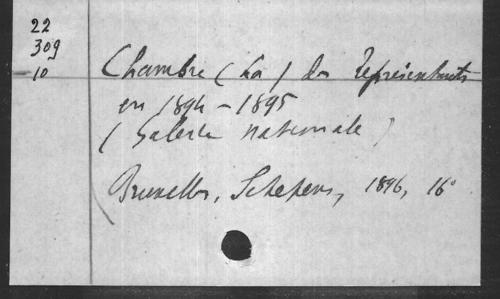 22
309
10
Chambre (La) des Représentants
en 1894-1895
(Galerie nationale)
Bruxelles, Schepens, 1896, 16°